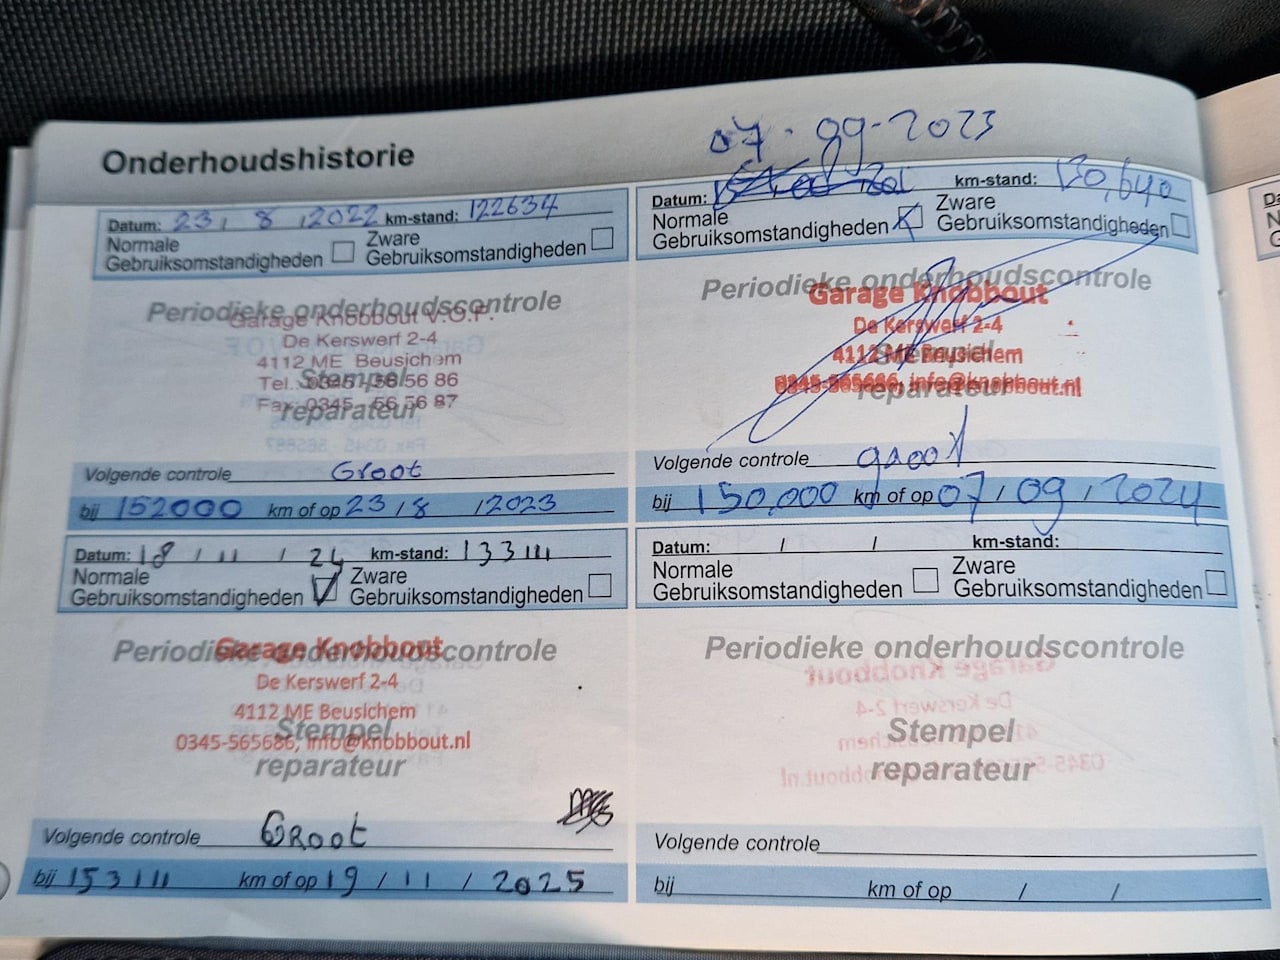 Onderhoudshistorie
07-09-2023
Datum: 23 / 8 / 2022 km-stand: 122634
Normale Gebruiksomstandigheden
Zware Gebruiksomstandigheden
Periodieke onderhoudscontrole
Garage Knobbout V.O.F.
De Kerswerf 2-4
4112 ME Beusichem
Tel. 0345 - 56 56 86
Stempel
Fax 0345 - 56 56 87
reparateur
Volgende controle Groot
bij 152000 km of op 23 / 8 / 2023
Datum: km-stand: 130,640
Normale Gebruiksomstandigheden
Zware Gebruiksomstandigheden
Periodieke onderhoudscontrole
Garage Knobbout
De Kerswerf 2-4
4112 ME Beusichem
Stempel
0345-565686, info@knobbout.nl
reparateur
Volgende controle groot
bij 150,000 km of op 07 / 09 / 2024
Datum: 18 / 11 / 24 km-stand: 133111
Normale Gebruiksomstandigheden
Zware Gebruiksomstandigheden
Periodieke onderhoudscontrole
Garage Knobbout
De Kerswerf 2-4
4112 ME Beusichem
Stempel
0345-565686, info@knobbout.nl
reparateur
Volgende controle Groot
bij 153111 km of op 19 / 11 / 2025
Datum: / / km-stand:
Normale Gebruiksomstandigheden
Zware Gebruiksomstandigheden
Periodieke onderhoudscontrole
Stempel
reparateur
Volgende controle
bij km of op / /